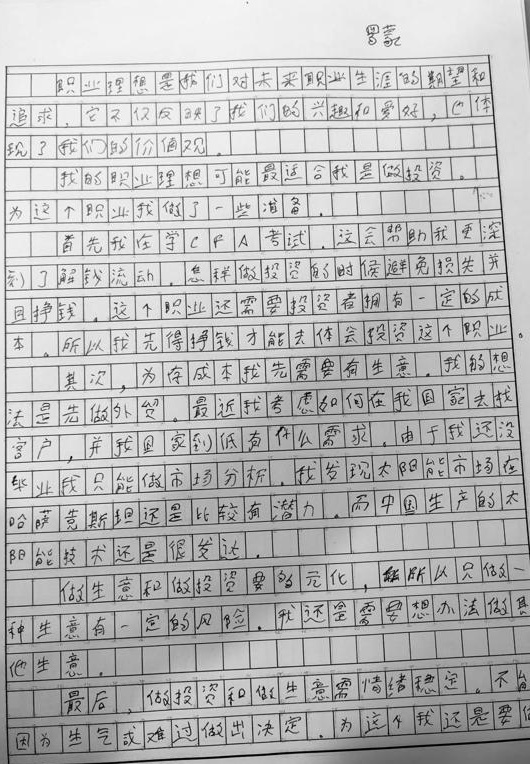 蒙
职业理想是我们对未来职业生涯的期望和
追求，它不仅反映了我们的兴趣和爱好，也体
现了我们的价值观。
我的职业理想可能最适合我是做投资。
为这个职业我做了一些准备。
首先我在学CPA考试。这会帮助我更深
刻了解钱流动。怎样做投资的时候避免损失并
且挣钱。这个职业还需要投资者拥有一定的成
本。所以我先得挣钱才能去体会投资这个职业。
其次，为存成本我先需要有生意。我的想
法是先做外贸。最近我考虑如何在我国家去找
客户，并我国家到低有什么需求。由于我还没
毕业我只能做市场分析。我发现太阳能市场在
哈萨克斯坦还是比较有潜力。而中国生产的太
阳能技术还是很发达。
做生意和做投资要多元化，所以只做一
种生意有一定的风险。我还是需要想办法做其
他生意。
最后，做投资和做生意需情绪稳定。不能
因为生气或难过做出决定。为这个我还是要